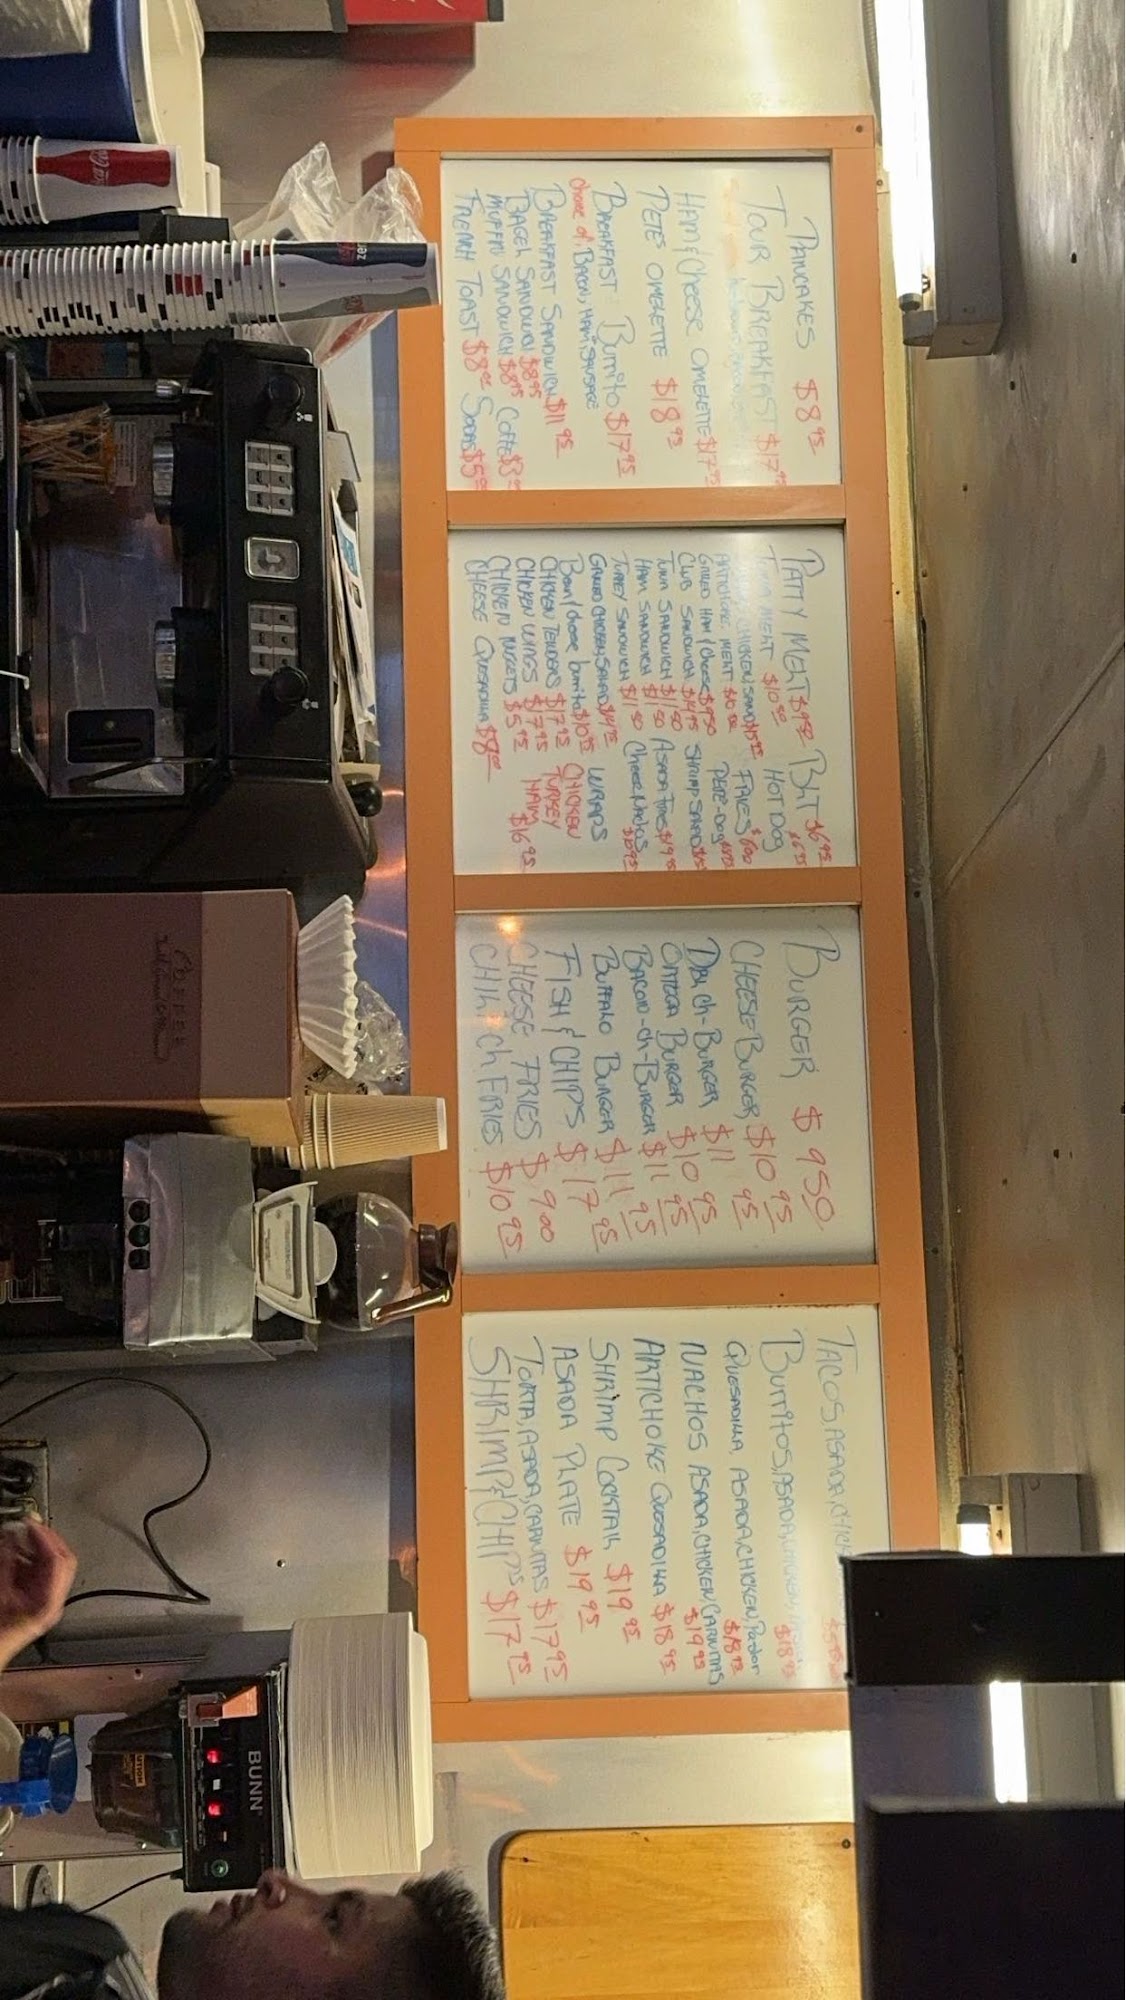 PANCAKES $8.95
TOUR BREAKFAST $17.95
HAM & CHEESE OMELETTE $17.95
PETE'S OMELETTE $18.95
BREAKFAST BURRITO $17.95
choice of, BACON, HAM, SAUSAGE
BREAKFAST SANDWICH $11.95
BAGEL SANDWICH $8.95 COFFEE $3
MUFFIN SANDWICH $8.95
FRENCH TOAST $8 SODAS $5
PATTY MELT $9.50 BLT $6.95
TUNA MELT $10.50 HOT DOG $6.95
CHICKEN SAND $15.95 FRIES $6.00
ARTICHOKE MELT $10.50 PETE-DOG
GRILLED HAM & CHEESE $9.50
CLUB SANDWICH $14.95 SHRIMP SALAD
TUNA SANDWICH $11.50 ASADA FRIES $19.95
HAM SANDWICH $11.50 CHEESE NACHOS $10.95
TURKEY SANDWICH $11.50
GRILLED CHICKEN SALAD $14.95 WRAPS
Bean & cheese burrito $10.95 CHICKEN
CHICKEN TENDERS $17.95 TURKEY
CHICKEN WINGS $17.95 HAM
CHICKEN NUGGETS $5.95 $16.95
CHEESE QUESADILLA $8.00
BURGER $9.50
CHEESE BURGER $10.95
DBL ch-BURGER $11.95
ORTEGA BURGER $10.95
BACON-ch-BURGER $11.95
BUFFALO BURGER $11.95
FISH & CHIPS $17.95
CHEESE FRIES $9.00
CHILI ch FRIES $10.95
TACOS, ASADA,
BURRITOS, ASADA, CHICKEN, $18.95
QUESADILLA, ASADA, CHICKEN, Pastor $18.95
NACHOS ASADA, CHICKEN, CARNITAS $19.95
ARTICHOKE QUESADILLA $18.95
SHRIMP COCKTAIL $19.95
ASADA PLATE $19.95
TORTA, ASADA, CARNITAS $17.95
SHRIMP & CHIPS $17.95
BUNN